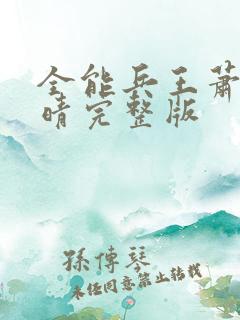 全能兵王萧
晴完整版
孫傳琴
未经同意禁止转载